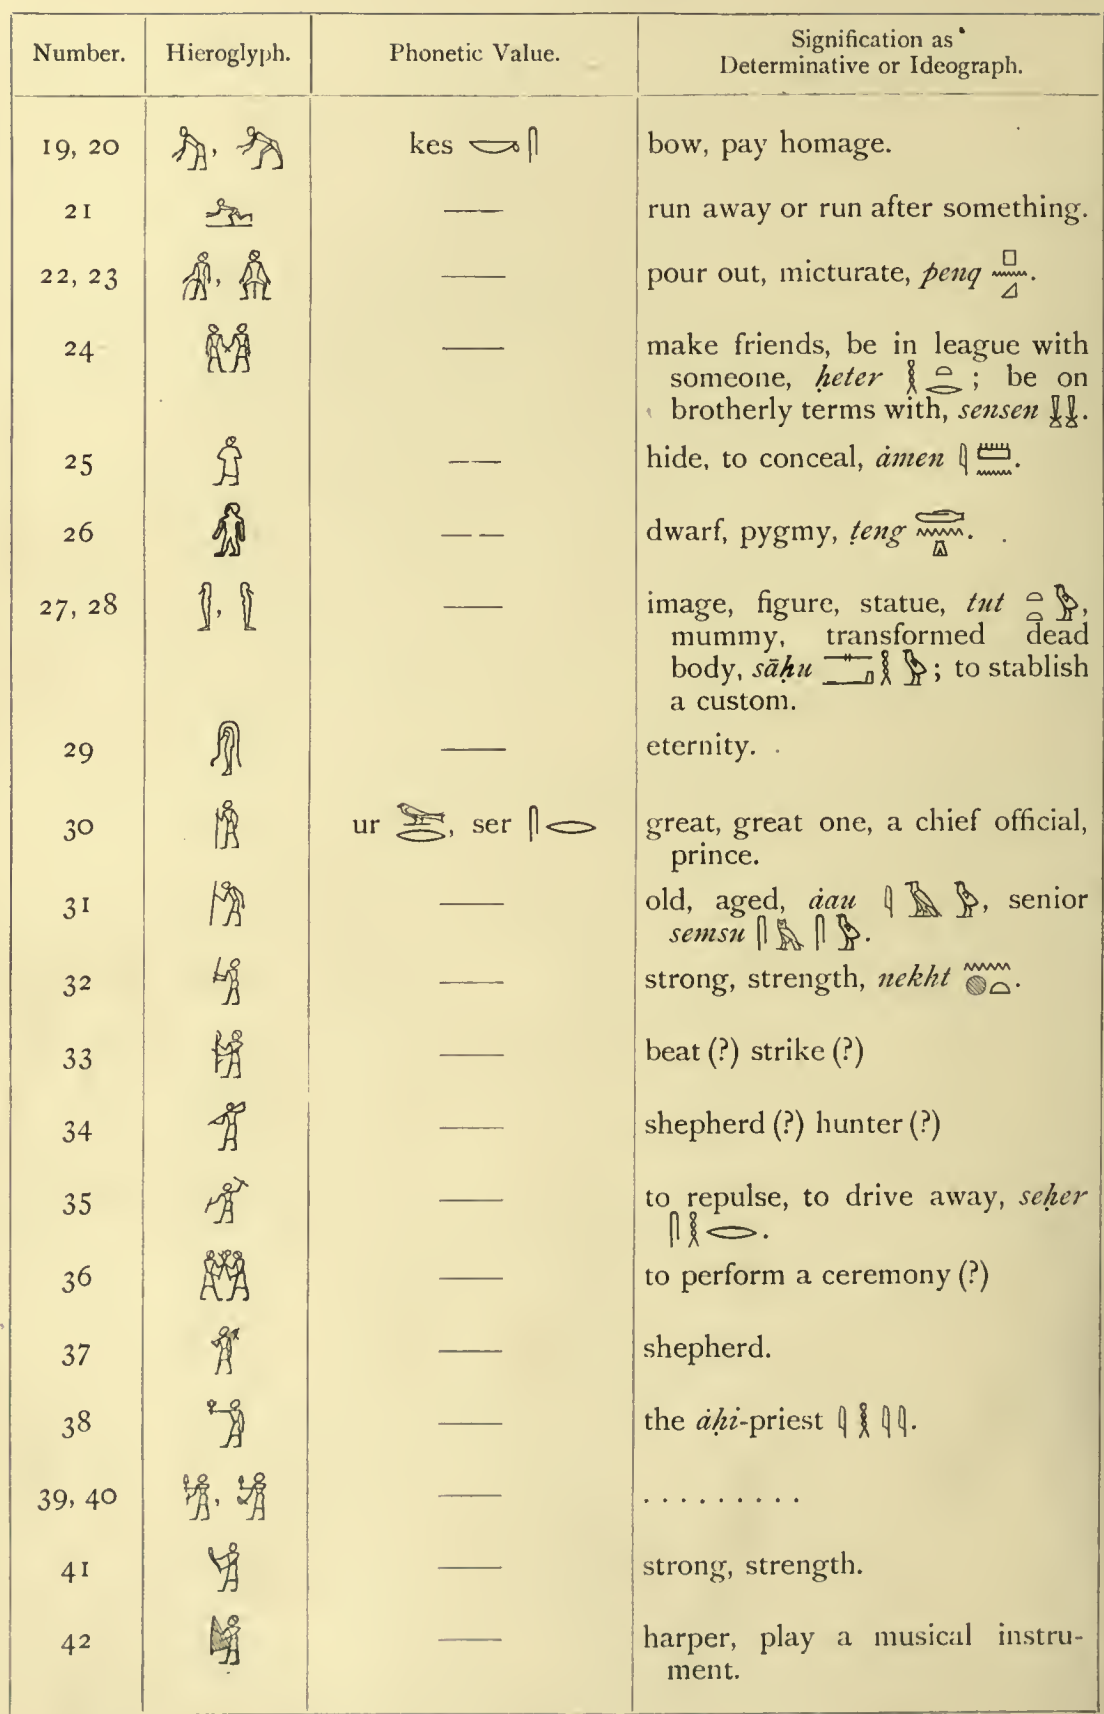 Number. Hieroglyph. Phonetic Value. Signification as
Determinative or Ideograph.
19, 20 𓀢, 𓀣 kes 𓎡𓋴 bow, pay homage.
21 — run away or run after something.
22, 23 — pour out, micturate, penq 𓊪𓈖𓈎.
24 — make friends, be in league with
someone, ḥeter 𓎛𓏏𓂋 ; be on
brotherly terms with, sensen 𓌢𓌢.
25 — hide, to conceal, ȧmen 𓇋𓏠𓈖.
26 — dwarf, pygmy, ṭeng 𓂧𓈖𓎼.
27, 28 — image, figure, statue, tut 𓏏𓅱𓏏,
mummy, transformed dead
body, sāḥu 𓊃𓂝𓎛𓅱 ; to stablish
a custom.
29 — eternity.
30 ur 𓅨𓂋, ser 𓋴𓂋 great, great one, a chief official,
prince.
31 — old, aged, ȧau 𓇋𓄿𓅱, senior
semsu 𓋴𓅓𓋴𓅱.
32 — strong, strength, nekht 𓈖𓐍𓏏.
33 — beat (?) strike (?)
34 — shepherd (?) hunter (?)
35 — to repulse, to drive away, seḥer
𓋴𓎛𓂋.
36 — to perform a ceremony (?)
37 — shepherd.
38 — the ȧḥi-priest 𓇋𓎛𓇋𓇋.
39, 40 — . . . . . . . . .
41 — strong, strength.
42 — harper, play a musical instru-
ment.